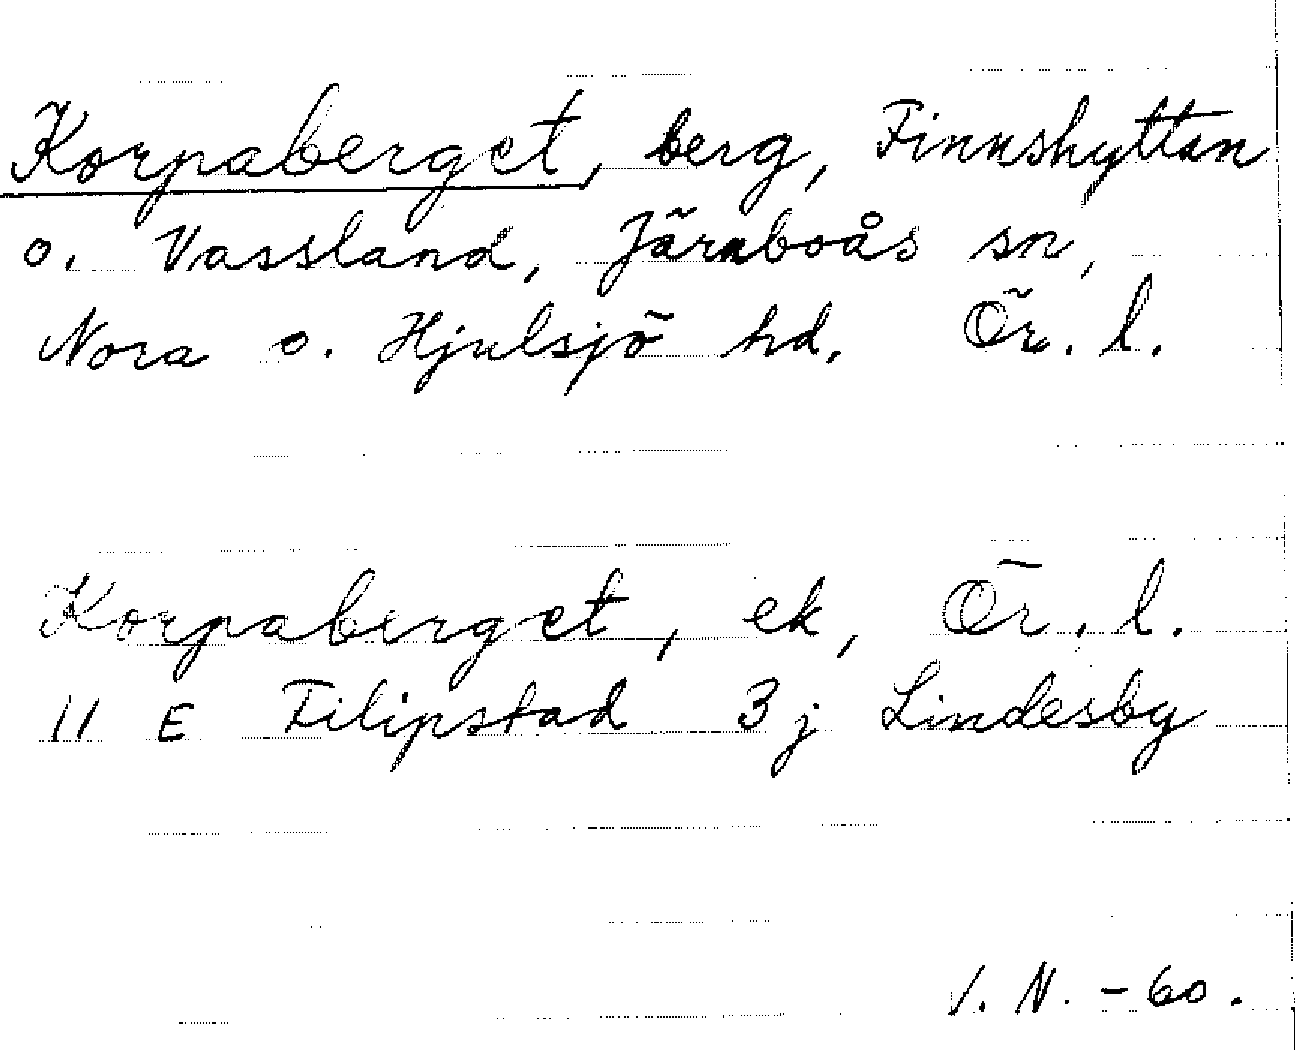 Korpaberget, berg, Finnshyttan
o. Vassland, Järnboås sn,
Nora o. Hjulsjö hd. Ör. l.
Korpaberget, ek, Ör. l.
11 E Filipstad 3 j Lindesby
I. N. - 60.